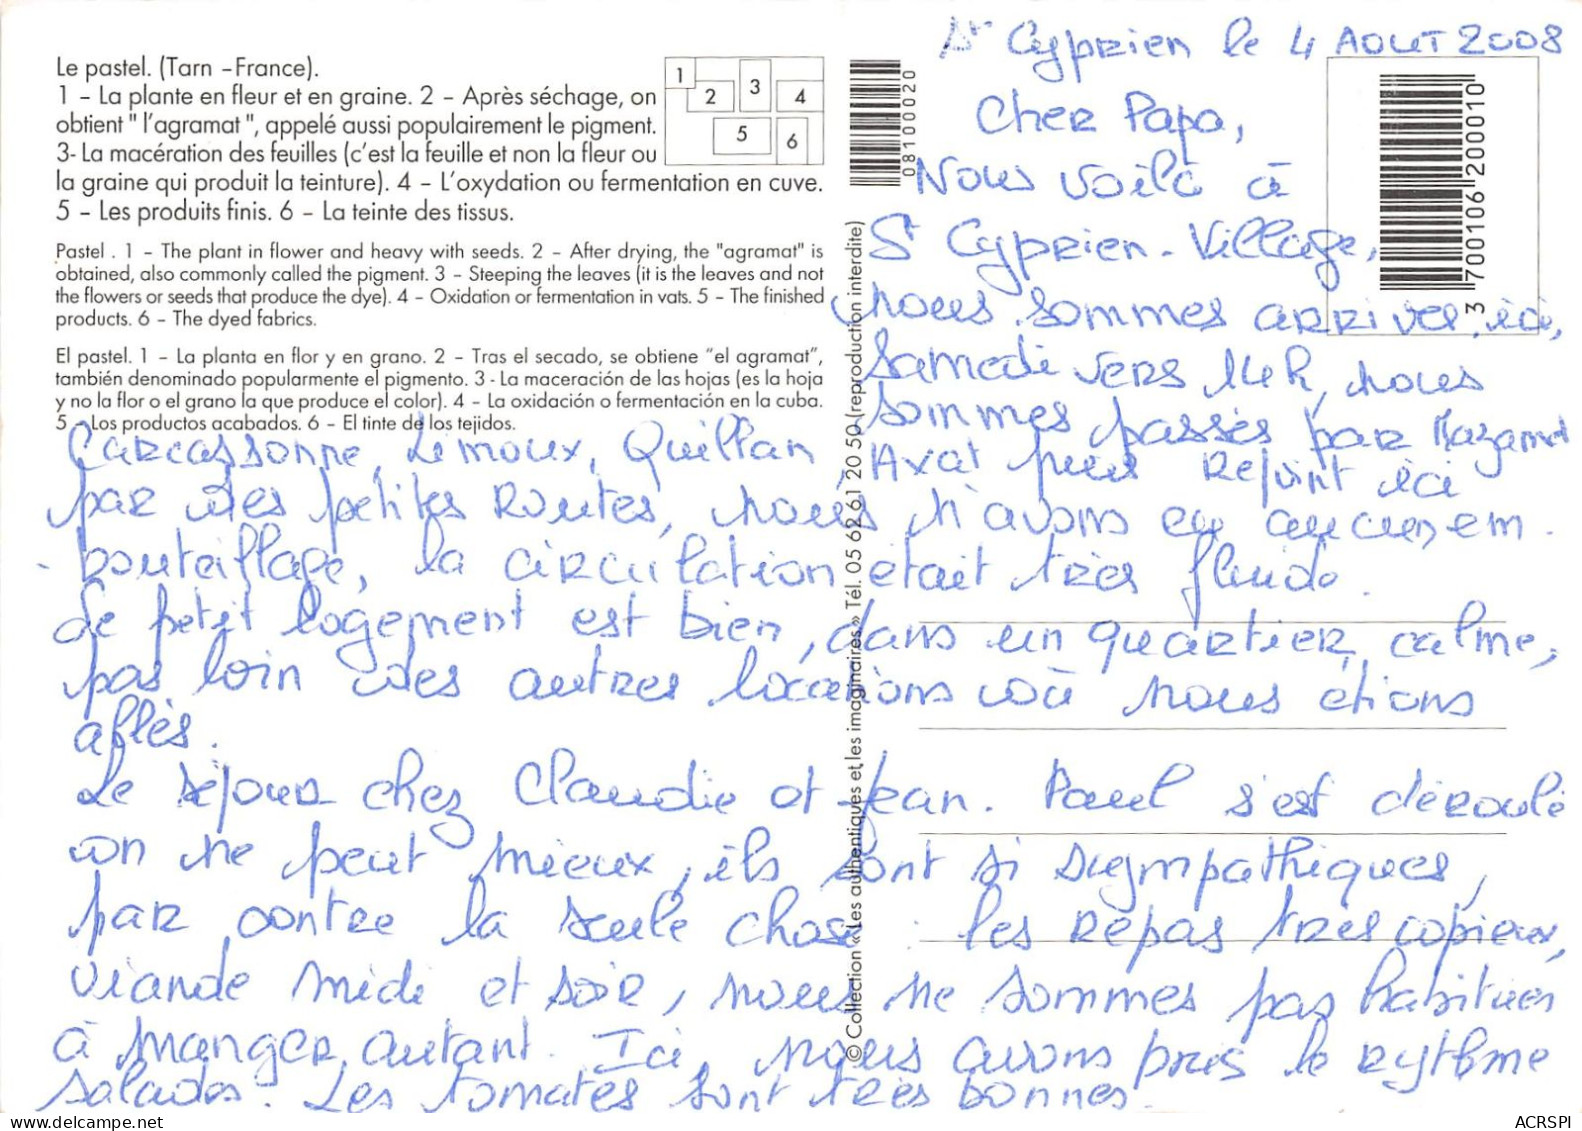 Le pastel. (Tarn – France).
1 – La plante en fleur et en graine. 2 – Après séchage, on
obtient " l'agramat ", appelé aussi populairement le pigment.
3- La macération des feuilles (c'est la feuille et non la fleur ou
la graine qui produit la teinture). 4 – L'oxydation ou fermentation en cuve.
5 – Les produits finis. 6 – La teinte des tissus.
1
2
3
4
5
6
Pastel . 1 – The plant in flower and heavy with seeds. 2 – After drying, the "agramat" is
obtained, also commonly called the pigment. 3 – Steeping the leaves (it is the leaves and not
the flowers or seeds that produce the dye). 4 – Oxidation or fermentation in vats. 5 – The finished
products. 6 – The dyed fabrics.
El pastel. 1 – La planta en flor y en grano. 2 – Tras el secado, se obtiene "el agramat",
también denominado popularmente el pigmento. 3 - La maceración de las hojas (es la hoja
y no la flor o el grano la que produce el color). 4 – La oxidación o fermentación en la cuba.
5 – Los productos acabados. 6 – El tinte de los tejidos.
08100020
3 700106 200010
© Collection «Les authentiques et les imaginaires» Tél. 05 62 61 20 50 (reproduction interdite)
St Cyprien le 4 AOUT 2008
Cher Papa,
Nous voilà à
St Cyprien-Village,
nous sommes arrivés ici,
Samedi vers 14h, nous
sommes passés par Mazamet
Carcassonne, Limoux, Quillan, Axat puis rejoint ici
par des petites routes, nous n'avons eu aucun em-
-bouteillage, la circulation était très fluide.
Le petit logement est bien, dans un quartier calme,
pas loin des autres locations où nous etions
allés.
Le séjour chez Claudie et Jean. Paul s'est déroulé
on ne peut mieux, ils sont si sympathiques,
par contre la seule chose : les repas très copieux,
viande midi et soir, nous ne sommes pas habitués
à manger autant. Ici, nous avons pris le rythme
salades. Les tomates sont très bonnes.
ACRSPI